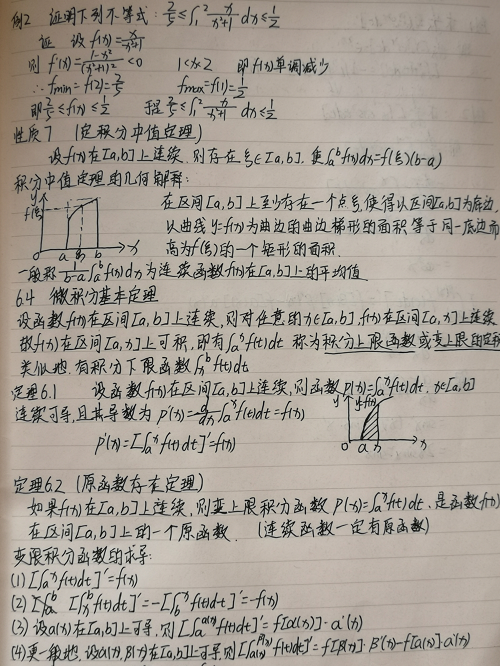 例2 证明下列不等式: 2/5≤∫₁² x/(x²+1) dx≤1/2
证 设f(x)=x/(x²+1)
则 f'(x)=(1-x²)/(x²+1)²<0 1<x<2 即f(x)单调减少
∴fmin=f(2)=2/5 fmax=f(1)=1/2
即2/5≤f(x)≤1/2 于是2/5≤∫₁² x/(x²+1) dx≤1/2
性质7 (定积分中值定理)
设f(x)在[a,b]上连续,则存在ξ∈[a,b],使∫ₐᵇf(x)dx=f(ξ)(b-a)
积分中值定理的几何解释:
y
f(ξ)
0 a ξ b x
在区间[a,b]上至少存在一个点ξ,使得以区间[a,b]为底边,
以曲线y=f(x)为曲边的曲边梯形的面积等于同一底边而
高为f(ξ)的一个矩形的面积.
一般称1/(b-a)∫ₐᵇf(x)dx为连续函数f(x)在[a,b]上的平均值
6.4 微积分基本定理
设函数f(x)在区间[a,b]上连续,则对任意的x∈[a,b],f(x)在区间[a,x]上连续
故f(x)在区间[a,x]上可积,即有∫ₐˣf(t)dt 称为积分上限函数或变上限的定积
类似地,有积分下限函数∫ₓᵇf(t)dt
定理6.1 设函数f(x)在区间[a,b]上连续,则函数p(x)=∫ₐˣf(t)dt, x∈[a,b]
连续可导,且其导数为 p'(x)=d/dx∫ₐˣf(t)dt=f(x)
p'(x)=[∫ₐˣf(t)dt]'=f(x)
y y=f(x)
0 a x x
定理6.2 (原函数存在定理)
如果f(x)在[a,b]上连续,则变上限积分函数 p(x)=∫ₐˣf(t)dt,是函数f(x)
在区间[a,b]上的一个原函数. (连续函数一定有原函数)
变限积分函数的求导:
(1) [∫ₐˣf(t)dt]'=f(x)
(2) [∫ₓᵇf(t)dt]'=-[∫ᵇˣf(t)dt]'=-f(x)
(3) 设a(x)在[a,b]上可导,则[∫ₐ^a(x) f(t)dt]'=f[a(x)]·a'(x)
(4)更一般地,设a(x),β(x)在[a,b]上可导则[∫_a(x)^β(x) f(t)dt]'=f[β(x)]·β'(x)-f[a(x)]·a'(x)